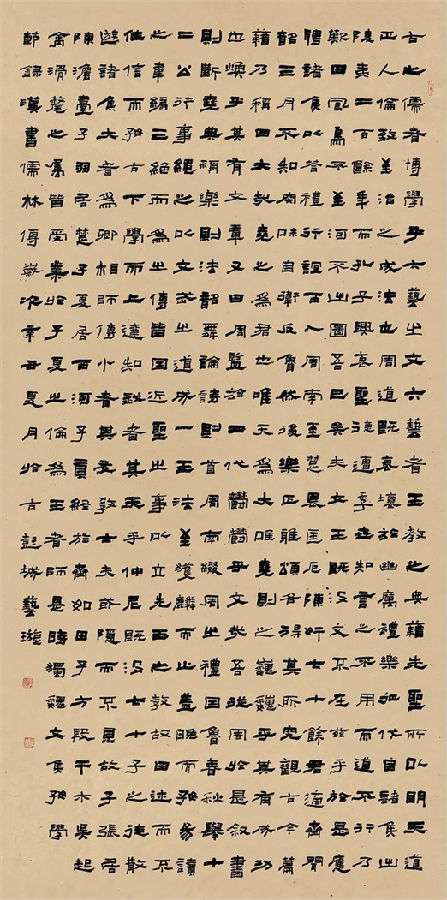 古之儒者博學乎六藝之文六藝者王教之典籍先聖所以明天道
正人倫致至治之成法也周道既衰壞於幽厲禮樂征伐自諸侯出
陵夷二百餘年而孔子興以聖德遭季世知言之不用而道不行乃
歎曰鳳鳥不至河不出圖吾已矣夫文王既沒文不在茲乎於是應
聘諸侯以答禮行誼西入周南至楚畏匡戹陳奸七十餘君適齊聞
韶三月不知肉味自衛反魯然後樂正雅頌各得其所究觀古今篇
籍乃稱曰大哉堯之為君也唯天為大唯堯則之巍巍乎其有成功
也煥乎其有文章又曰周監於二代鬱鬱乎文哉吾從周於是敘書
則斷堯典稱樂則法韶舞論詩則首周南綴周之禮因魯春秋舉十
二公行事繩之以文武之道成一王法至獲麟而止蓋晚而好易讀
之韋編三絕而為之傳皆因近聖之事以立先王之教故曰述而不
作信而好古下學而上達知我者其天乎仲尼既沒七十子之徒散
遊諸侯大者為卿相師傅小者友教士大夫或隱而不見故子張居
陳澹臺子羽居楚子夏居西河子貢終於齊如田子方段干木吳起
禽滑氂之屬皆受業於子夏之倫為王者師是時獨魏文侯好學
節錄漢書儒林傳歲次辛丑夏月於古彭城藝璇